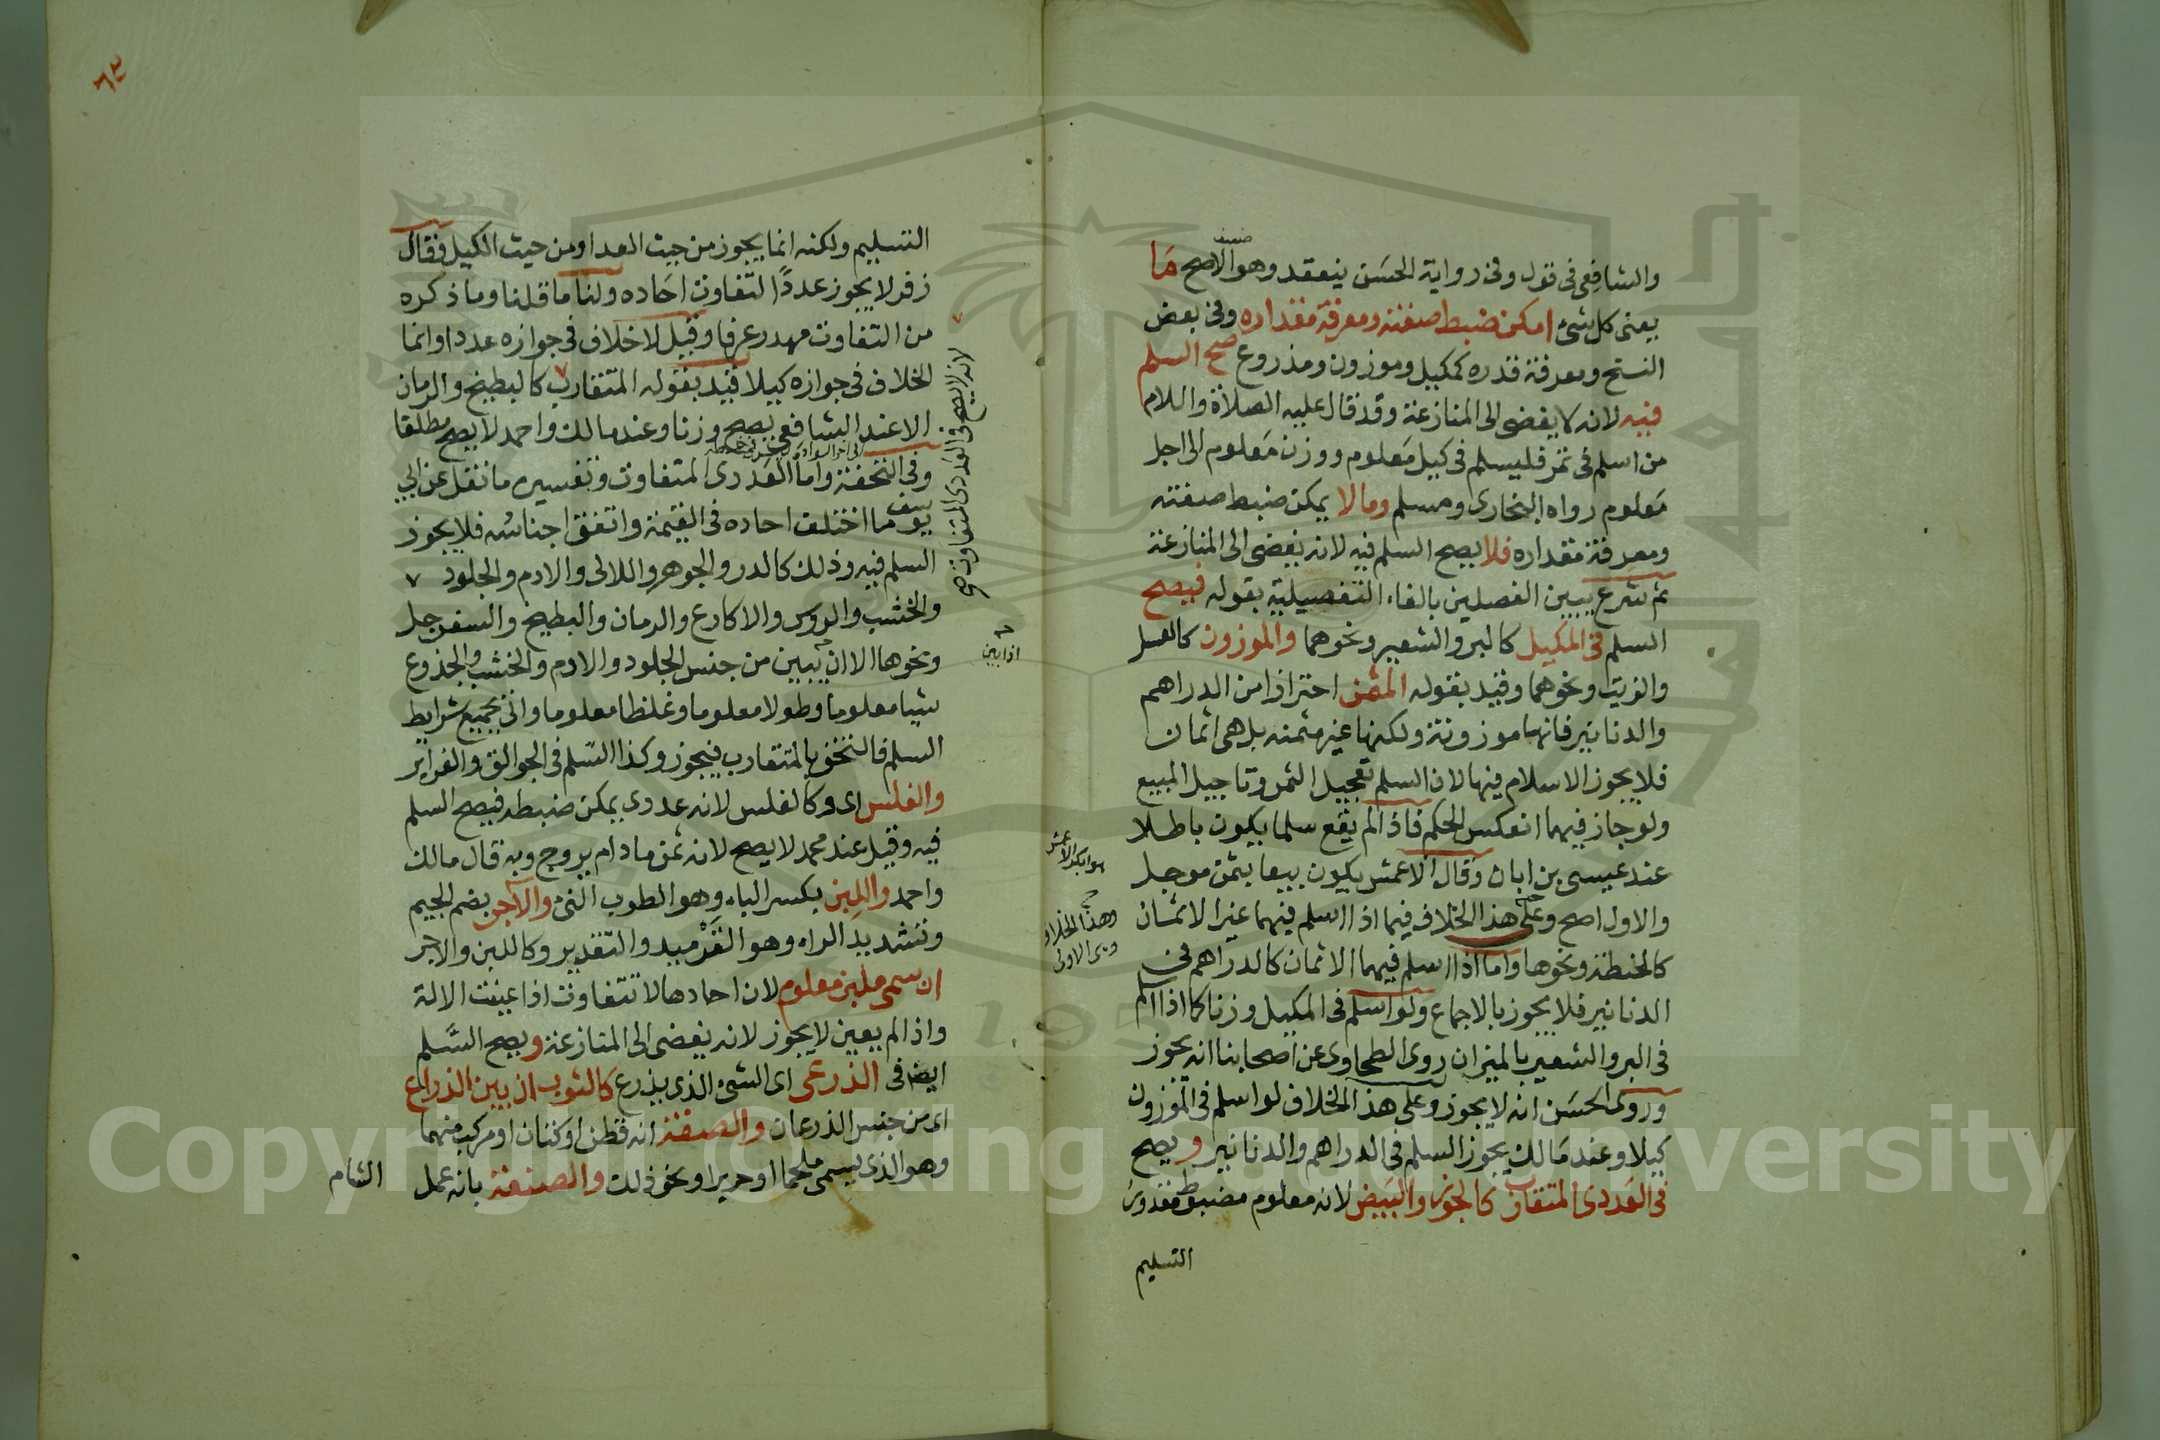 والشافعى فى قول وفى رواية الحسن ينعقد وهو الاصح ما
ضعيف
يعنى كل شئ امكن ضبط صفته ومعرفة مقداره وفى بعض
النسخ ومعرفة قدره كمكيل وموزون ومذروع صح السلم
فيه لانه لا يفضى الى المنازعة وقد قال عليه الصلاة والسلام
من اسلم فى تمر فليسلم فى كيل معلوم ووزن معلوم الى اجل
معلوم رواه البخارى ومسلم وما لا يمكن ضبط صفته
ومعرفة مقداره فلا يصح السلم فيه لانه يفضى الى المنازعة
ثم شرع يبين الفصلين بالفاء التفصيلية بقوله فيصح
السلم فى المكيل كالبر والشعير ونحوهما والموزون كالعسل
والزيت ونحوهما وقيد بقوله المثمن احترازا من الدراهم
والدنانير فانهما موزونة ولكنها غير مثمنه بل هى اثمان
فلا يجوز الاسلام فيها لان السلم تعجيل الثمن وتاجيل المبيع
ولو جاز فيهما انعكس الحكم فاذا لم يقع سلما يكون باطلا
عند عيسى بن ابان وقال الاعمش يكون بيعا بثمن موجل
والاول اصح وعلى هذا الخلاف فيما اذا اسلم فيهما غير الاثمان
كالحنطة ونحوها واما اذا اسلم فيهما الاثمان كالدراهم فى
الدنانير فلا يجوز بالاجماع ولو اسلم فى المكيل وزنا كما اذا اسلم
فى البر والشعير بالميزان روى الطحاوى عن اصحابنا انه يجوز
وروى الحسن انه لا يجوز وعلى هذا الخلاف لو اسلم فى الموزون
كيلا وعند مالك يجوز السلم فى الدراهم والدنانير ويصح
فى العددى المتقارب كالجوز والبيض لانه معلوم مضبوط مقدور
التسليم
هو ابكر الاعمش
وهذا الخلاف
التسليم ولكنه انما يجوز من حيث العد او من حيث الكيل فقال
زفر لا يجوز عددا لتفاوت احاده ولنا ما قلنا وما ذكره
من التفاوت مهدر عرفا وقيل لا خلاف فى جوازه عددا وانما
الخلاف فى جوازه كيلا قيد بقوله المتقارب كالبطيخ والرمان
الا عند الشافعى يصح وزنا وعند مالك واحمد لا يصح مطلقا
وفى التحفة واما العددى المتفاوت وتفسيره ما نقل عن ابى
يوسف ما اختلف احاده فى القيمة واتفق اجناسه فلا يجوز
السلم فيه وذلك كالدر والجوهر واللالى والادم والجلود
والخشب والروس والاكارع والرمان والبطيخ والسفرجل
ونحوها الا ان يبين من جنس الجلود والادم والخشب والجذوع
شيا معلوما وطولا معلوما وغلظا معلوما واتى بجميع شرايط
السلم فالتحق بالمتقارب فيجوز وكذا السلم فى الجوالق والغراير
والفلس اى وكالفلس لانه عددى يمكن ضبطه فيصح السلم
فيه وقيل عند محمد لا يصح لانه ثمن ما دام يروج وبه قال مالك
واحمد واللبن بكسر الباء وهو الطوب النئ والآجر بضم الجيم
وتشديد الراء وهو القرميد والتقدير وكاللبن والاجر
ان سمى ملبن معلوم لان احادها لا تتفاوت اذا عينت الالة
واذا لم يعين لا يجوز لانه يفضى الى المنازعة ويصح السلم
ايضا فى الذرعى اى الشئ الذى يذرع كالثوب ان بين الذراع
اى من جنس الذرعان والصفة انه قطن او كتان او مركب منهما
وهو الذى يسمى ملحما او حريرا ونحو ذلك والصنعة بانه عمل
الشام
لانه لا يصح فى العددى المتفاوت
اذا بين
٦٢
Copyright © King Saud University
1957